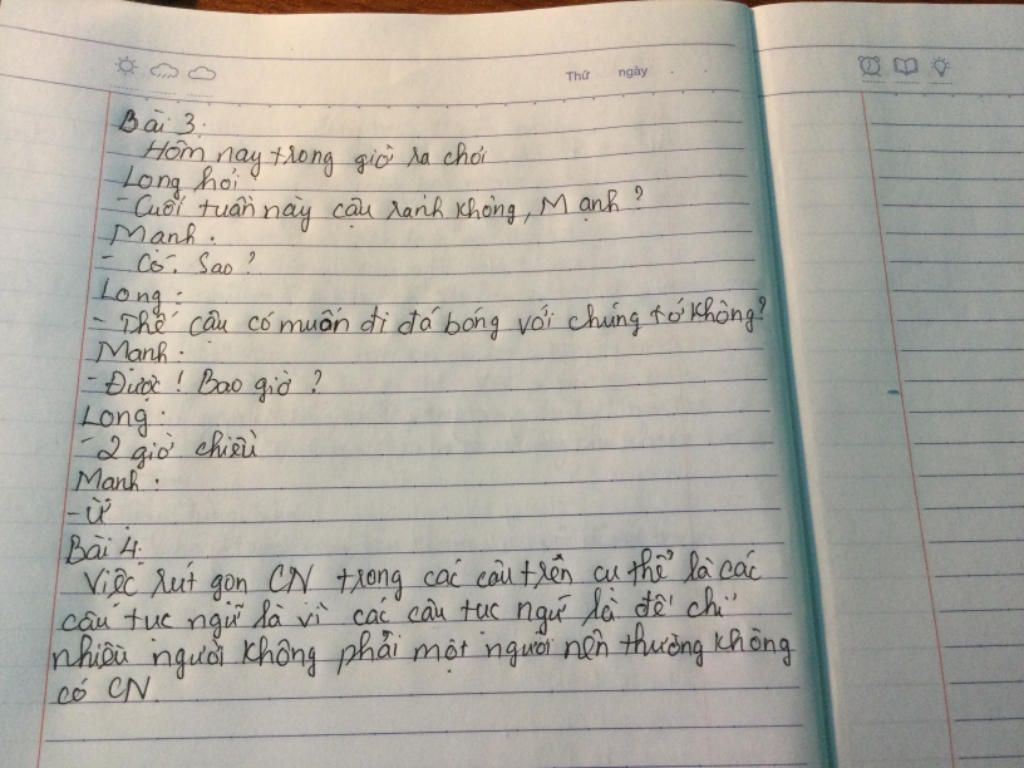 Thứ ngày
Bài 3:
Hôm nay trong giờ ra chơi
Long hỏi:
- Cuối tuần này cậu rảnh không, Mạnh?
Mạnh:
- Có. Sao?
Long:
- Thế cậu có muốn đi đá bóng với chúng tớ không?
Mạnh:
- Được! Bao giờ?
Long:
- 2 giờ chiều
Mạnh:
- Ừ
Bài 4:
Việc rút gọn CN trong các câu trên cụ thể là các
câu tục ngữ là vì các câu tục ngữ là để chỉ
nhiều người không phải một người nên thường không
có CN.